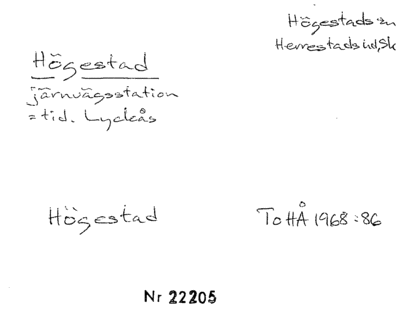 Högestads sn
Herrestads hd, Sk
Högestad
järnvägsstation
= tid. Lyckås
Högestad
ToHÅ 1968:86
Nr 22205